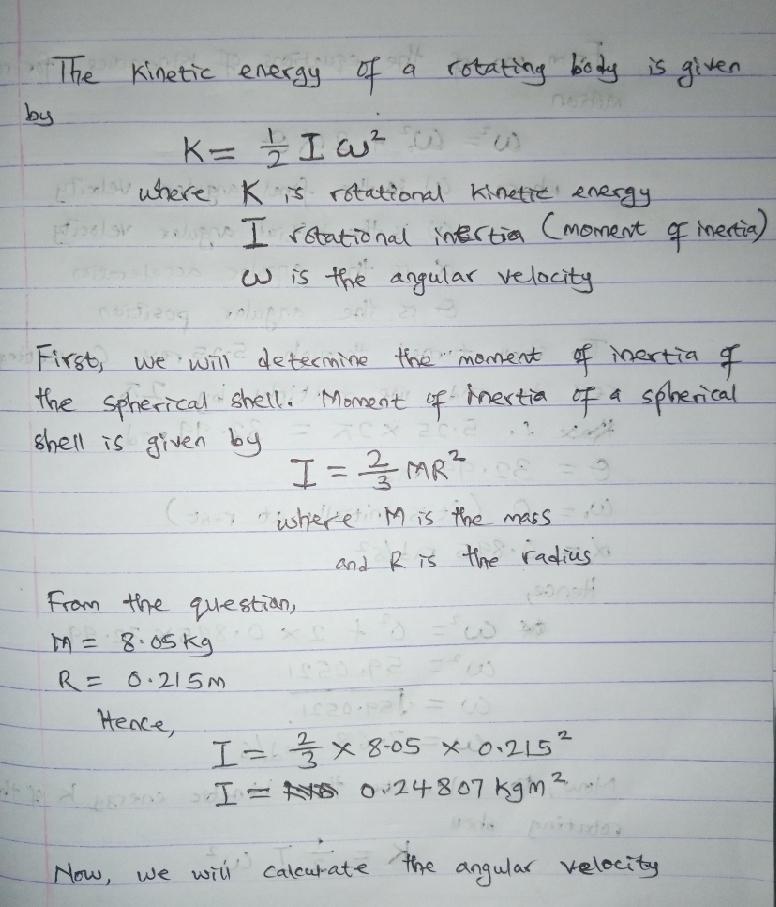 The Kinetic energy of a rotating body is given
by
K = 1/2 I ω²
where K is rotational Kinetic energy
I rotational inertia (moment of inertia)
ω is the angular velocity
First, we will determine the moment of inertia of
the spherical shell. Moment of inertia of a spherical
shell is given by
I = 2/3 MR²
where M is the mass
and R is the radius
From the question,
M = 8.05 kg
R = 0.215m
Hence,
I = 2/3 × 8.05 × 0.215²
I = 0.24807 kgm²
Now, we will calculate the angular velocity